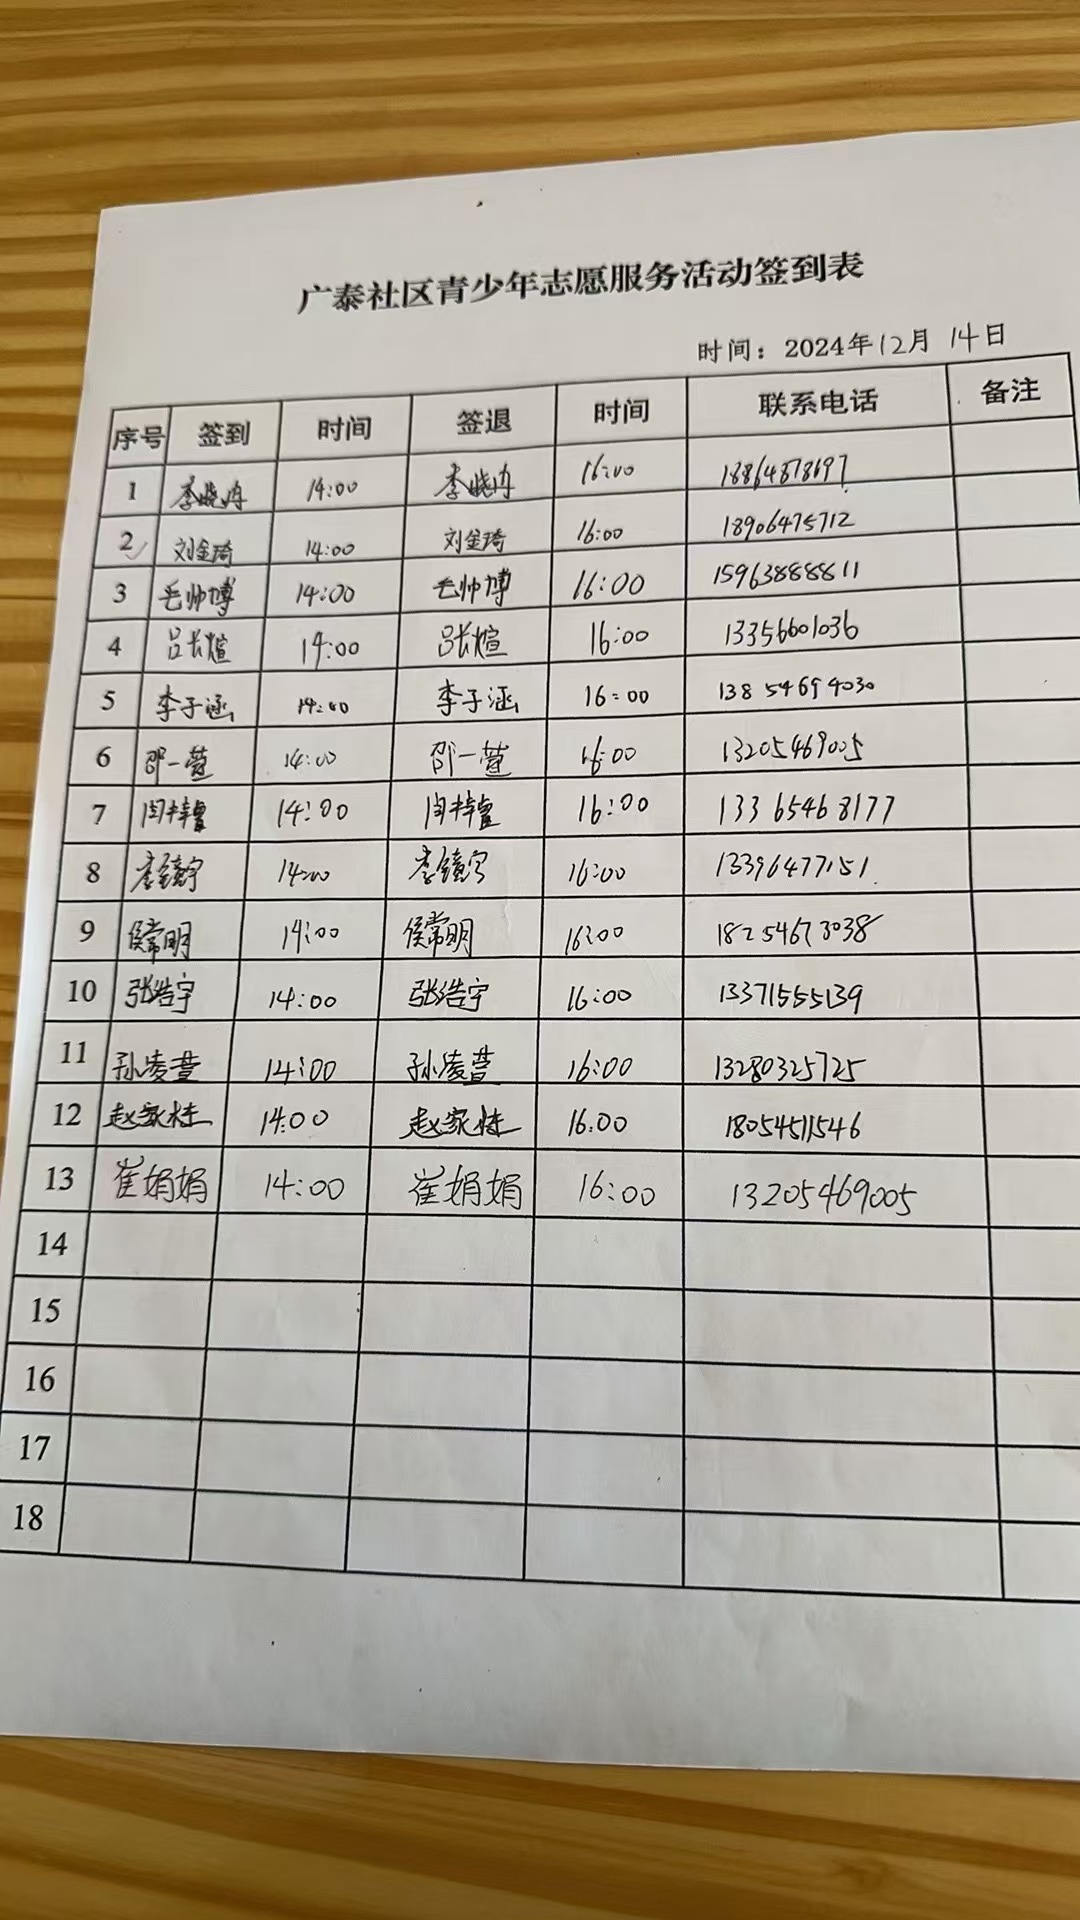 广泰社区青少年志愿服务活动签到表
时间：2024年12月14日
序号 签到 时间 签退 时间 联系电话 备注
1 李晓冉 14:00 李晓冉 16:00
2 刘金琦 14:00 刘金琦 16:00 18906475712
3 毛帅博 14:00 毛帅博 16:00 15963888811
4 吕长煊 14:00 吕长煊 16:00 13356601036
5 李子涵 14:00 李子涵 16:00 13854694030
6 邵一萱 14:00 邵一萱 16:00 13205469005
7 14:00 16:00 13365468177
8 14:00 16:00 13396477151
9 侯常明 14:00 侯常明 16:00 18254673038
10 张浩宇 14:00 张浩宇 16:00 13371555139
11 孙凌萱 14:00 孙凌萱 16:00 13280325725
12 14:00 16:00 18054511546
13 崔娟娟 14:00 崔娟娟 16:00 13205469005
14
15
16
17
18